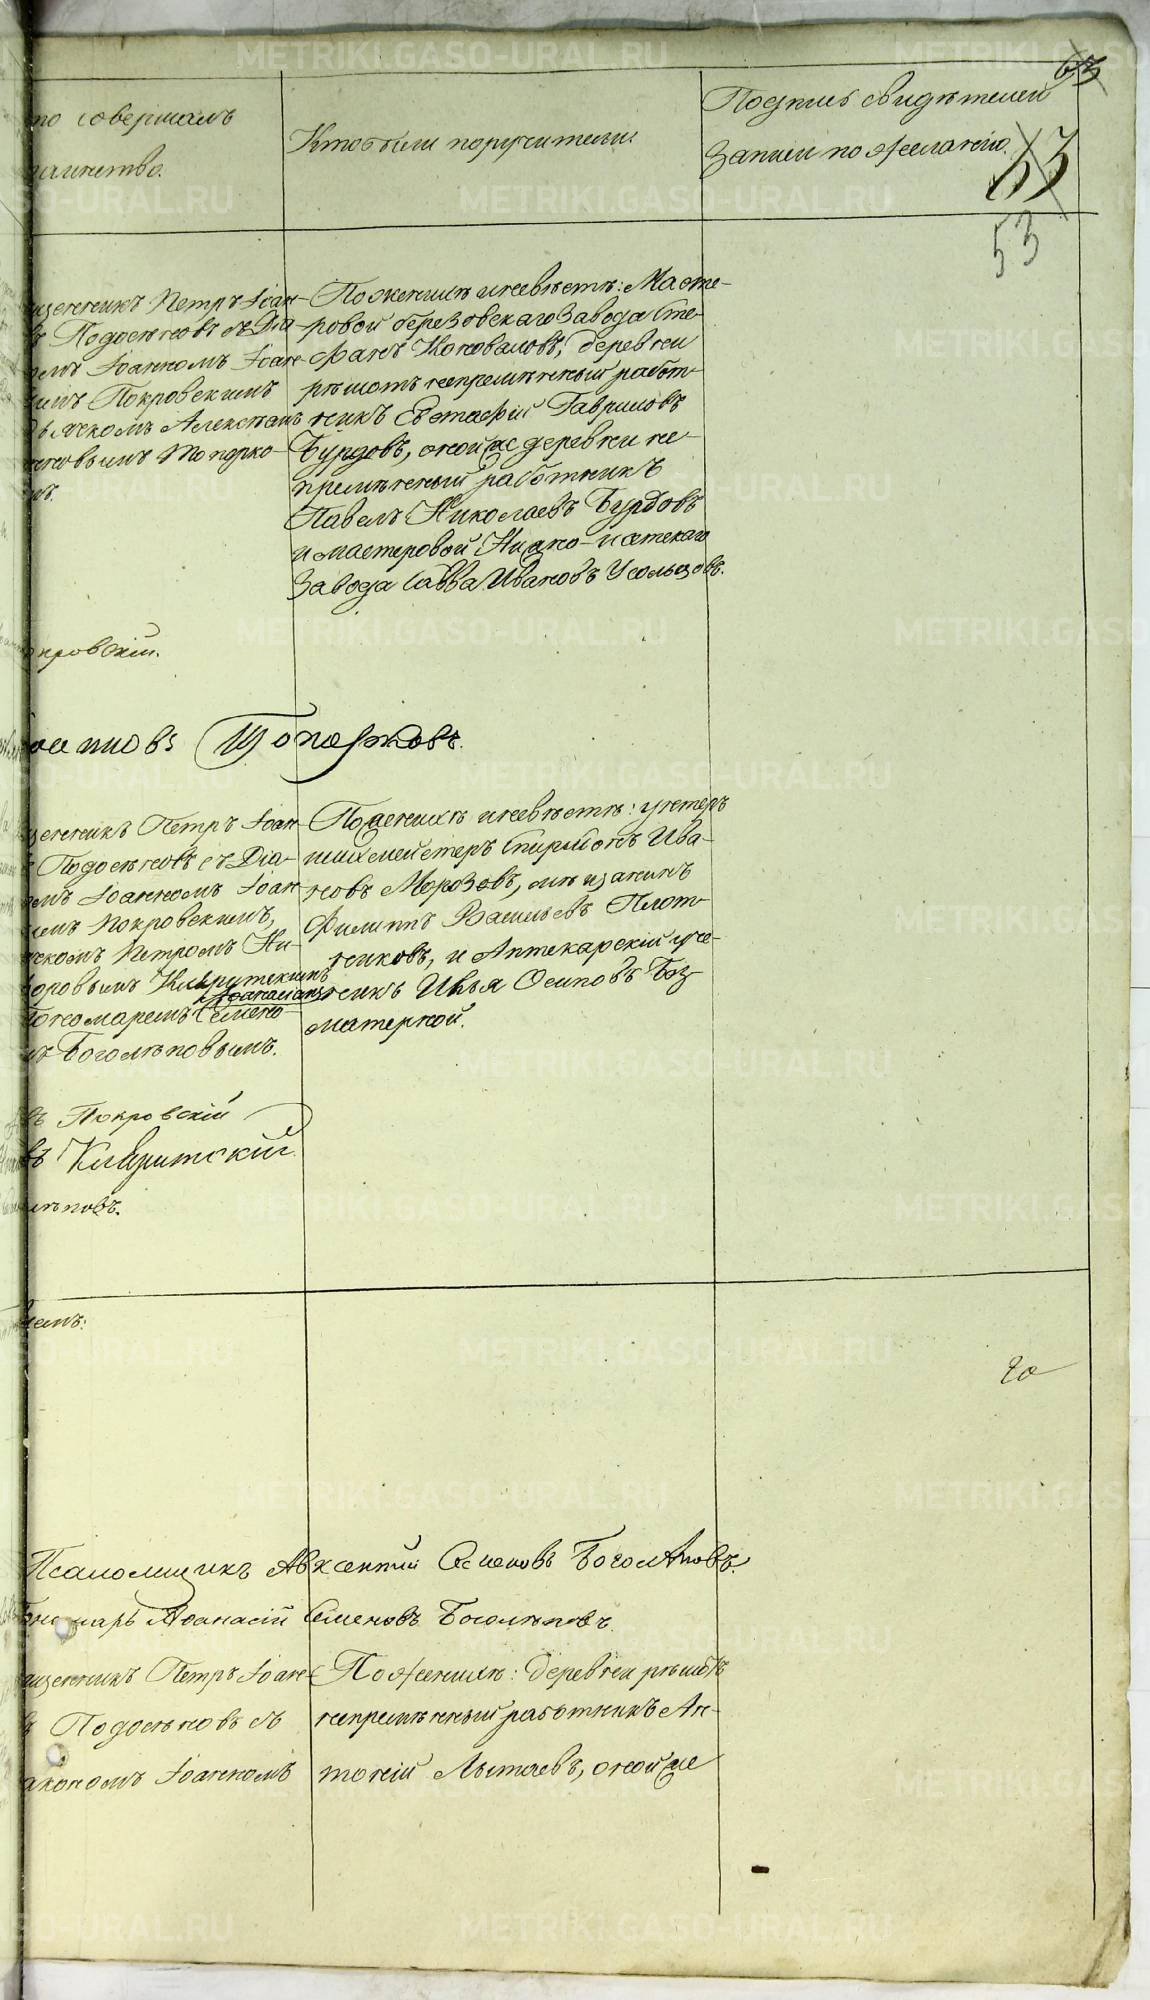 63
то совершалъ
таинство.
Кто были поручители.
Подпись свидѣтелей
записи по желанію.
53
53
щенникъ Петръ Іоан-
въ Подосѣновъ съ Діа-
омъ Іоанномъ Іоан-
имъ Покровскимъ
дьячкомъ
новымъ Топорко-
мъ.
По женихѣ и невѣстѣ: Масте-
ровой березовскаго завода Сте-
фанъ Коноваловъ; деревни
рѣшотъ непремѣнный работ-
никъ Евстафій Гавриловъ
Бурдовъ, оной же деревни не-
премѣнный работникъ
Павелъ Николаевъ Бурдовъ
и мастеровой Нижно-исетскаго
завода Савва Ивановъ Усольцовъ.
кровскій.
Топорковъ.
щенникъ Петръ Іоан-
въ Подосѣновъ съ Діа-
омъ Іоанномъ Іоан-
имъ Покровскимъ,
чкомъ Петромъ Ни-
Аѳанасіемъ
пономаремъ Семено-
мъ Боголѣповымъ.
По женихѣ и невѣстѣ: унтеръ
шихмейстеръ Спиридонъ Ива-
новъ Морозовъ, мѣщанинъ
Филиппъ Васильевъ Плот-
никовъ, и Аптекарскій уче-
никъ Илья Осиповъ Без
матерной.
въ Покровскій
въ
лѣповъ.
20
Псаломщикъ Авксентий Семеновъ Боголѣповъ.
Пономарь Аѳанасій Семеновъ Боголѣповъ
щенникъ Петръ Іоан-
въ Подосѣновъ съ
акономъ Іоанномъ
По женихѣ: Деревни рѣшотъ
непремѣнный работникъ Ан-
тоній Лытаевъ, оной же
METRIKI.GASO-URAL.RU